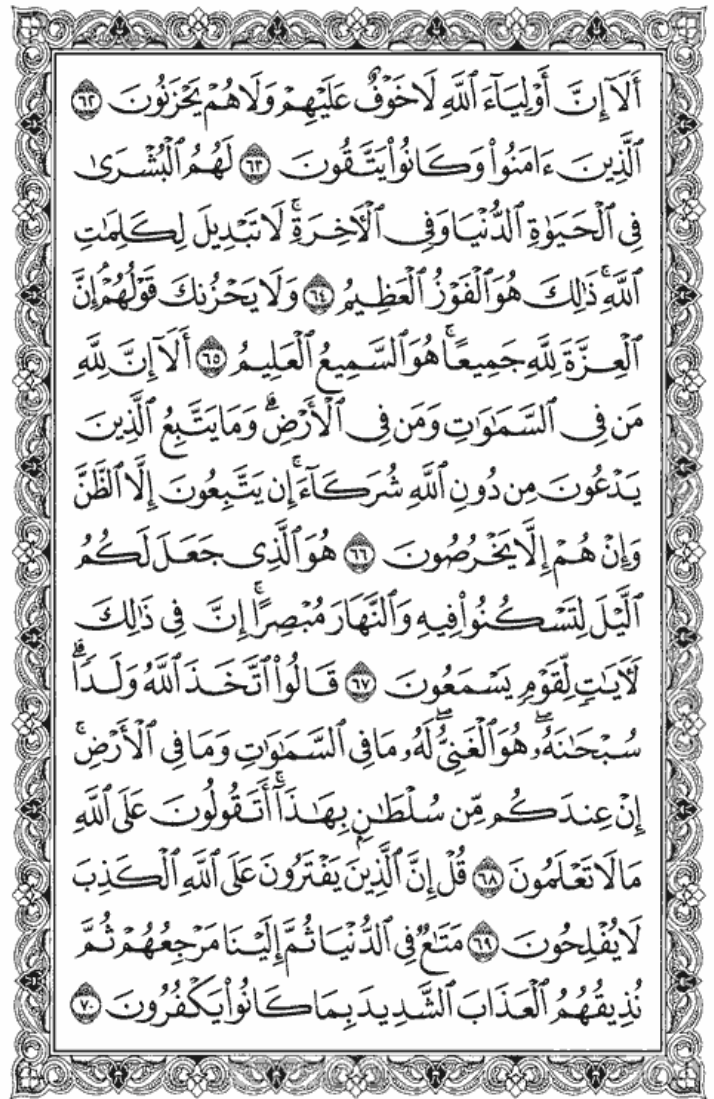 أَلَآ إِنَّ أَوْلِيَآءَ ٱللَّهِ لَا خَوْفٌ عَلَيْهِمْ وَلَا هُمْ يَحْزَنُونَ ٦٢
ٱلَّذِينَ ءَامَنُوا۟ وَكَانُوا۟ يَتَّقُونَ ٦٣ لَهُمُ ٱلْبُشْرَىٰ
فِى ٱلْحَيَوٰةِ ٱلدُّنْيَا وَفِى ٱلْـَٔاخِرَةِ ۚ لَا تَبْدِيلَ لِكَلِمَـٰتِ
ٱللَّهِ ۚ ذَٰلِكَ هُوَ ٱلْفَوْزُ ٱلْعَظِيمُ ٦٤ وَلَا يَحْزُنكَ قَوْلُهُمْ ۘ إِنَّ
ٱلْعِزَّةَ لِلَّهِ جَمِيعًا ۚ هُوَ ٱلسَّمِيعُ ٱلْعَلِيمُ ٦٥ أَلَآ إِنَّ لِلَّهِ
مَن فِى ٱلسَّمَـٰوَٰتِ وَمَن فِى ٱلْأَرْضِ ۗ وَمَا يَتَّبِعُ ٱلَّذِينَ
يَدْعُونَ مِن دُونِ ٱللَّهِ شُرَكَآءَ ۚ إِن يَتَّبِعُونَ إِلَّا ٱلظَّنَّ
وَإِنْ هُمْ إِلَّا يَخْرُصُونَ ٦٦ هُوَ ٱلَّذِى جَعَلَ لَكُمُ
ٱلَّيْلَ لِتَسْكُنُوا۟ فِيهِ وَٱلنَّهَارَ مُبْصِرًا ۚ إِنَّ فِى ذَٰلِكَ
لَـَٔايَـٰتٍ لِّقَوْمٍ يَسْمَعُونَ ٦٧ قَالُوا۟ ٱتَّخَذَ ٱللَّهُ وَلَدًا ۗ
سُبْحَـٰنَهُۥ ۖ هُوَ ٱلْغَنِىُّ ۖ لَهُۥ مَا فِى ٱلسَّمَـٰوَٰتِ وَمَا فِى ٱلْأَرْضِ ۚ
إِنْ عِندَكُم مِّن سُلْطَـٰنٍۭ بِهَـٰذَآ ۚ أَتَقُولُونَ عَلَى ٱللَّهِ
مَا لَا تَعْلَمُونَ ٦٨ قُلْ إِنَّ ٱلَّذِينَ يَفْتَرُونَ عَلَى ٱللَّهِ ٱلْكَذِبَ
لَا يُفْلِحُونَ ٦٩ مَتَـٰعٌ فِى ٱلدُّنْيَا ثُمَّ إِلَيْنَا مَرْجِعُهُمْ ثُمَّ
نُذِيقُهُمُ ٱلْعَذَابَ ٱلشَّدِيدَ بِمَا كَانُوا۟ يَكْفُرُونَ ٧٠